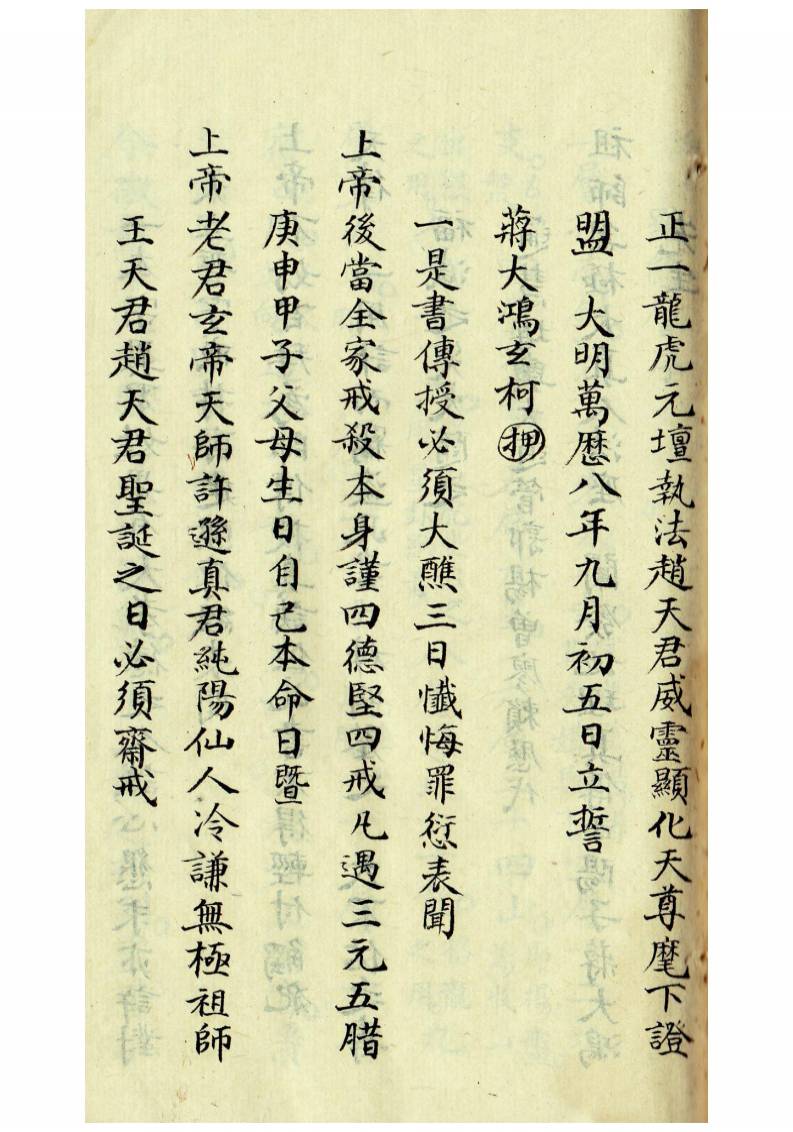 正一龍虎元壇執法趙天君威靈顯化天尊麾下證
盟　大明萬歷八年九月初五日立誓
蔣大鴻玄柯押
一是書傳授必須大醮三日懺悔罪愆表聞
上帝後當全家戒殺本身謹四德堅四戒凡遇三元五腊
庚申甲子父母生日自己本命日暨
上帝老君玄帝天師許遜真君純陽仙人冷謙無極祖師
王天君趙天君聖誕之日必須齋戒